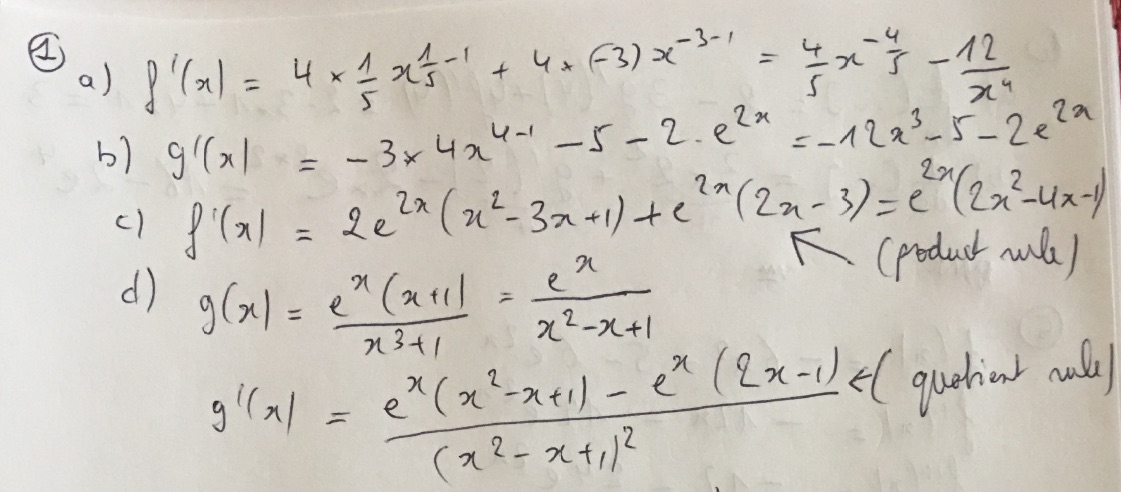 ① a) f'(x) = 4 × 1/5 x^(1/5 - 1) + 4 × (-3) x^(-3-1) = 4/5 x^(-4/5) - 12/x^4
b) g'(x) = -3 × 4x^(4-1) - 5 - 2 · e^(2x) = -12x^3 - 5 - 2e^(2x)
c) f'(x) = 2e^(2x) (x^2 - 3x + 1) + e^(2x) (2x - 3) = e^(2x) (2x^2 - 4x - 1)
↖ (product rule)
d) g(x) = e^x (x+1) / x^3 + 1 = e^x / x^2 - x + 1
g'(x) = e^x (x^2 - x + 1) - e^x (2x - 1) / (x^2 - x + 1)^2 ← (quotient rule)